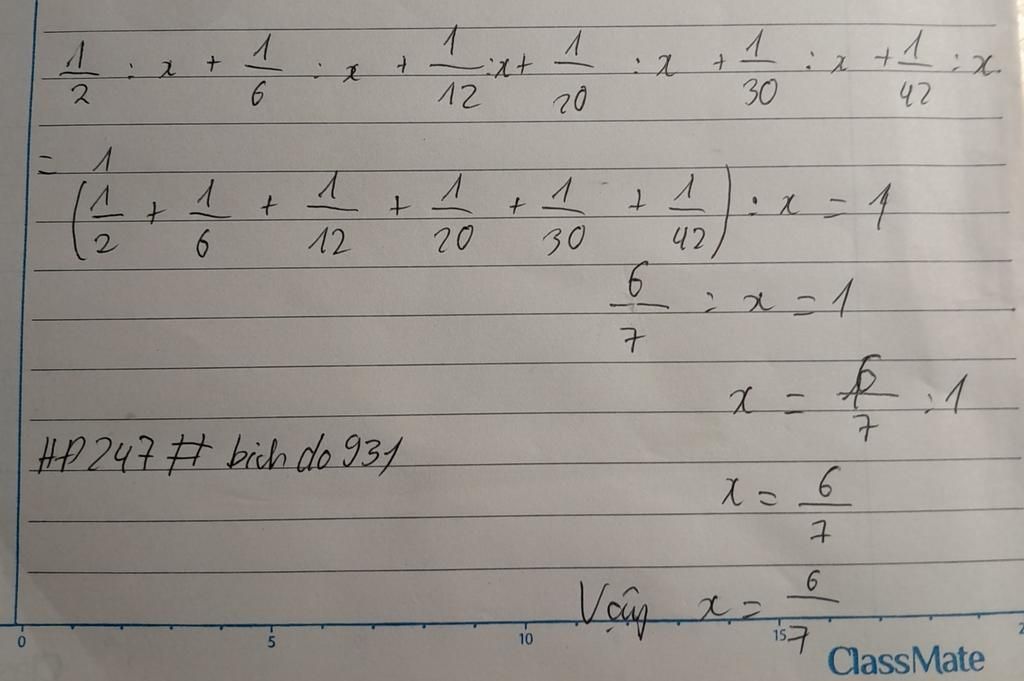 1/2 : x + 1/6 : x + 1/12 : x + 1/20 : x + 1/30 : x + 1/42 : x
= 1
(1/2 + 1/6 + 1/12 + 1/20 + 1/30 + 1/42) : x = 1
6/7 : x = 1
x = 6/7 : 1
HP247 # bichdo931
x = 6/7
Vậy x = 6/7
0 5 10 15 2
ClassMate